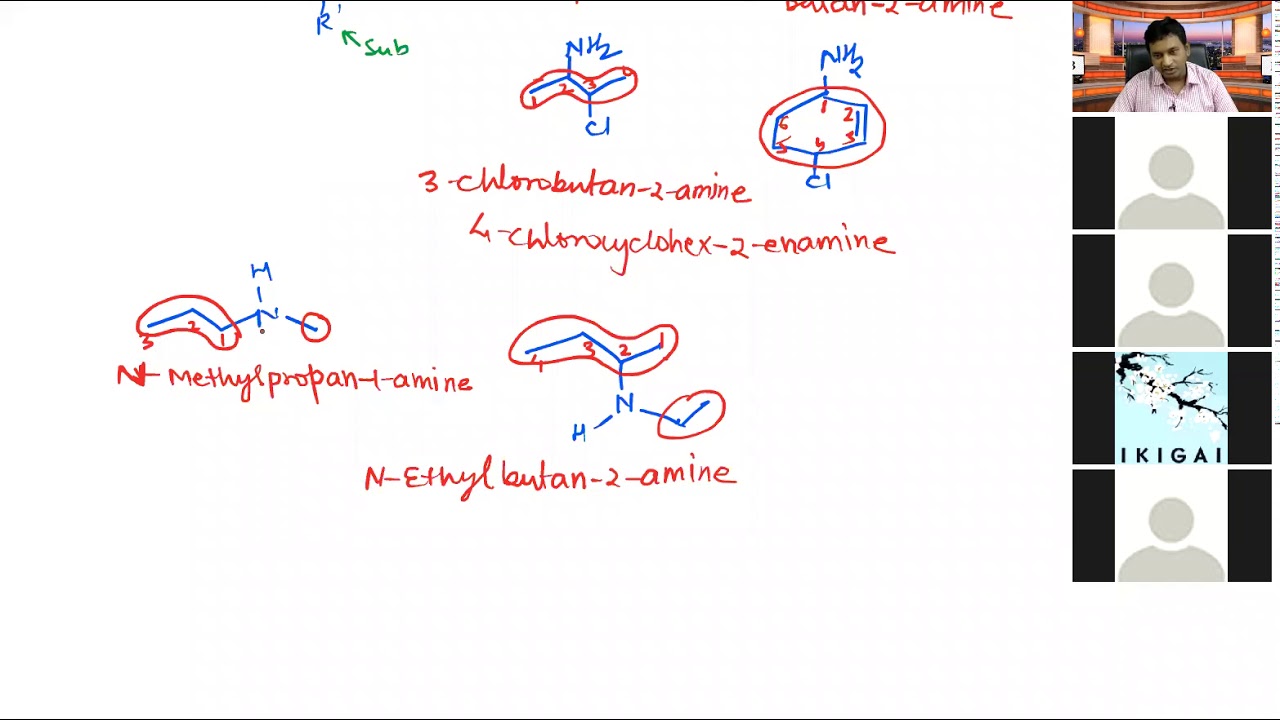 butan-2-amine
R'
Sub
NH2
1 2 3
Cl
NH2
1
6 2
5 4 3
Cl
3-chlorobutan-2-amine
4-chlorocyclohex-2-enamine
H
N
3 2 1
N-Methylpropan-1-amine
4 3 2 1
N
H
N-Ethylbutan-2-amine
IKIGAI